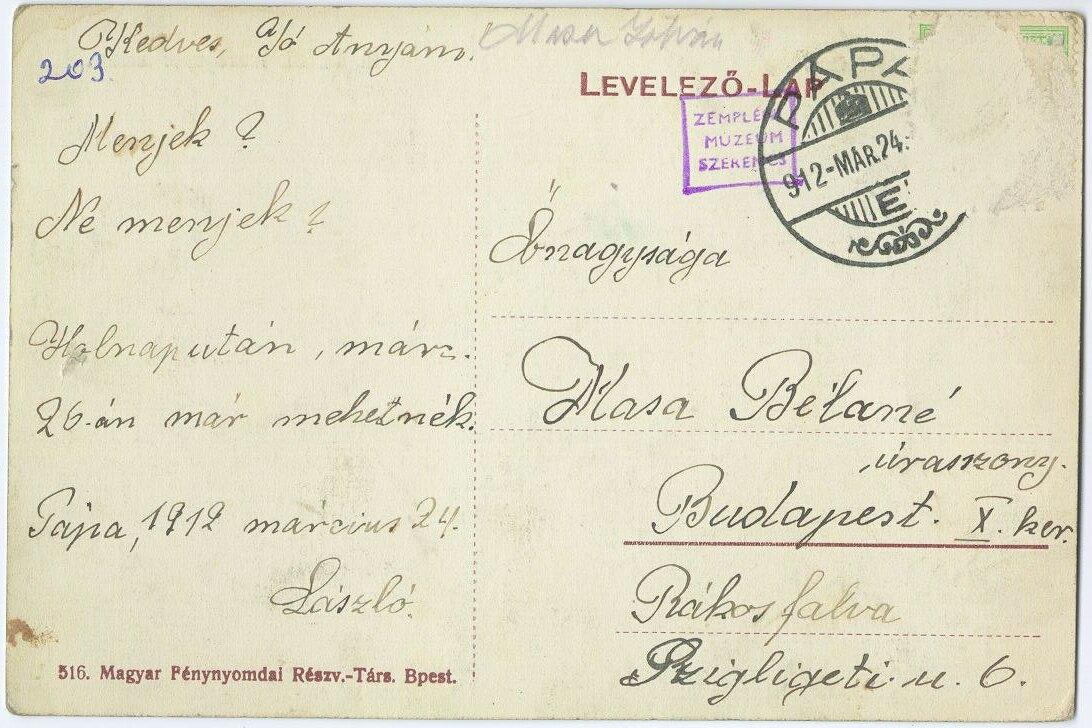 Kedves, Jó Anyám.
203.
Menjek?
Ne menjek?
Holnapután, márc.
26-án már mehetnék.
Pápa, 1912 március 24.
László.
516. Magyar Fénynyomdai Részv.-Társ. Bpest.
Masa
LEVELEZŐ-LAP
ZEMPLÉNI
MÚZEUM
SZERENCS
PÁPA
912-MÁR.24.
E
Őnagysága
Masa Béláné
úrasszony.
Budapest. X. ker.
Rákosfalva
Szigligeti u. 6.